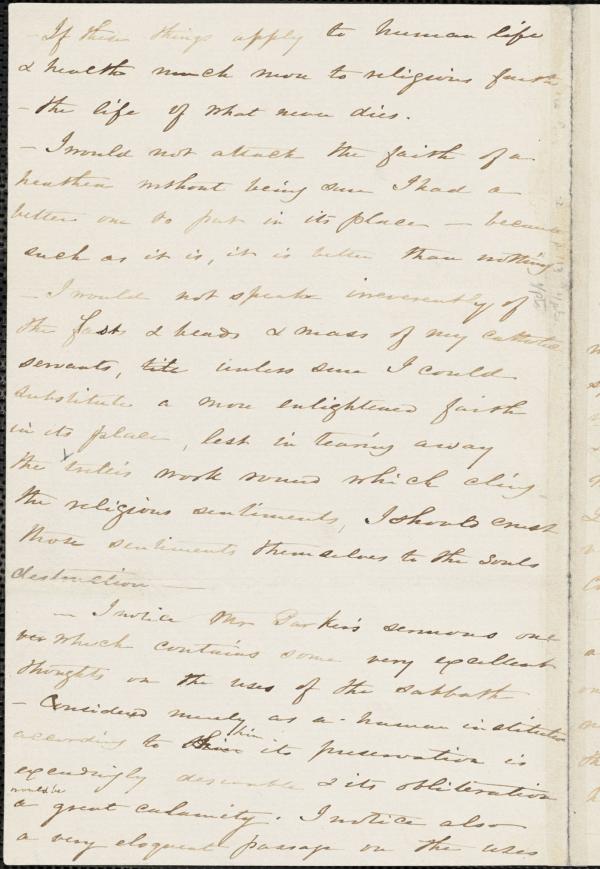 - If these things apply to human life
& health much more to religious faith
- the life of what never dies.
- I would not attack the faith of a
heathen without being sure I had a
better one to put in its place - because
such as it is, it is better than nothing
- I would not speak irreverently of
the fasts & beads & mass of my catholic
servants, unless sure I could
substitute a more enlightened faith
in its place, lest in tearing away
the work round which cling
the religious sentiments, I should crush
those sentiments themselves to the souls
destruction -
- I notice Mr Parker's sermons one
which contains some very excellent
thoughts on the uses of the Sabbath
- Considered merely as a human institution
according to him its preservation is
exceedingly desirable & its obliteration
would be
a great calamity. I notice also
a very eloquent passage on the uses